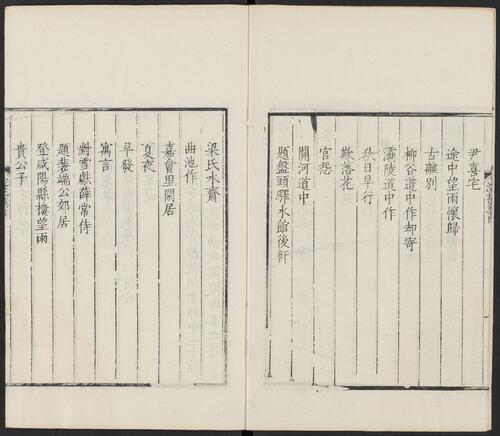 尹喜宅
途中望雨懷歸
古離別
柳谷道中作却寄
灞陵道中作
秋日早行
歎落花
宮怨
關河道中
題盤頭驛水館後軒
梁氏水齋
曲池作
嘉會里閒居
夏夜
早發
寓言
對雪獻薛常侍
題裴端公郊居
登咸陽縣樓望雨
貴公子